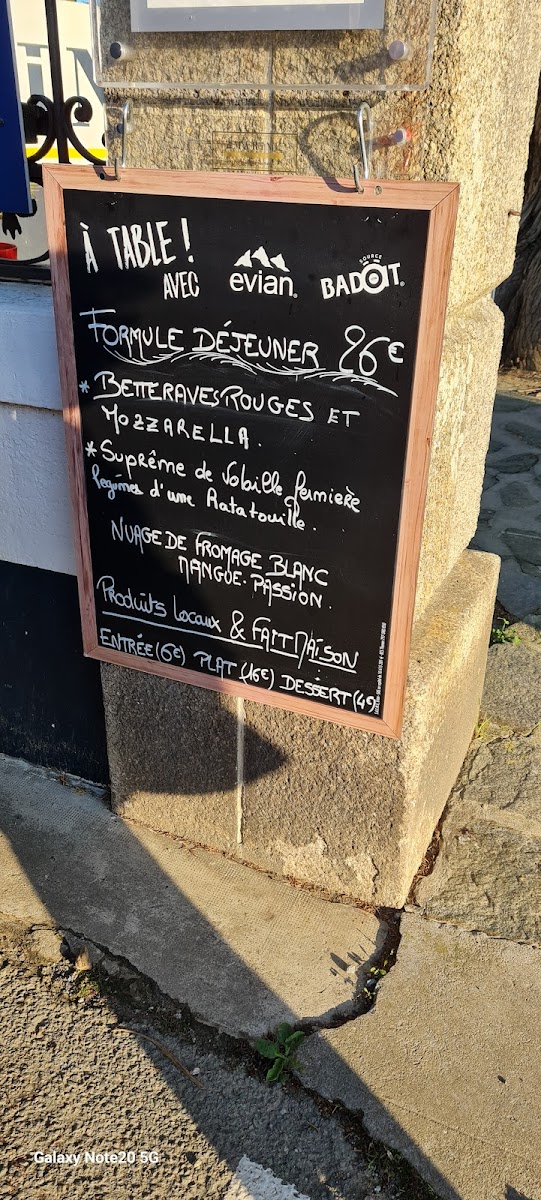 À TABLE !
AVEC
evian®
SOURCE
BADOIT®
FORMULE DÉJEUNER 26€
* BETTERAVES ROUGES ET
MOZZARELLA.
* Suprême de Volaille fermière
legumes d'une Ratatouille.
NUAGE DE FROMAGE BLANC
MANGUE-PASSION.
Produits Locaux & FAIT MAISON
ENTRÉE (6€) PLAT (16€) DESSERT (4€)
Galaxy Note20 5G